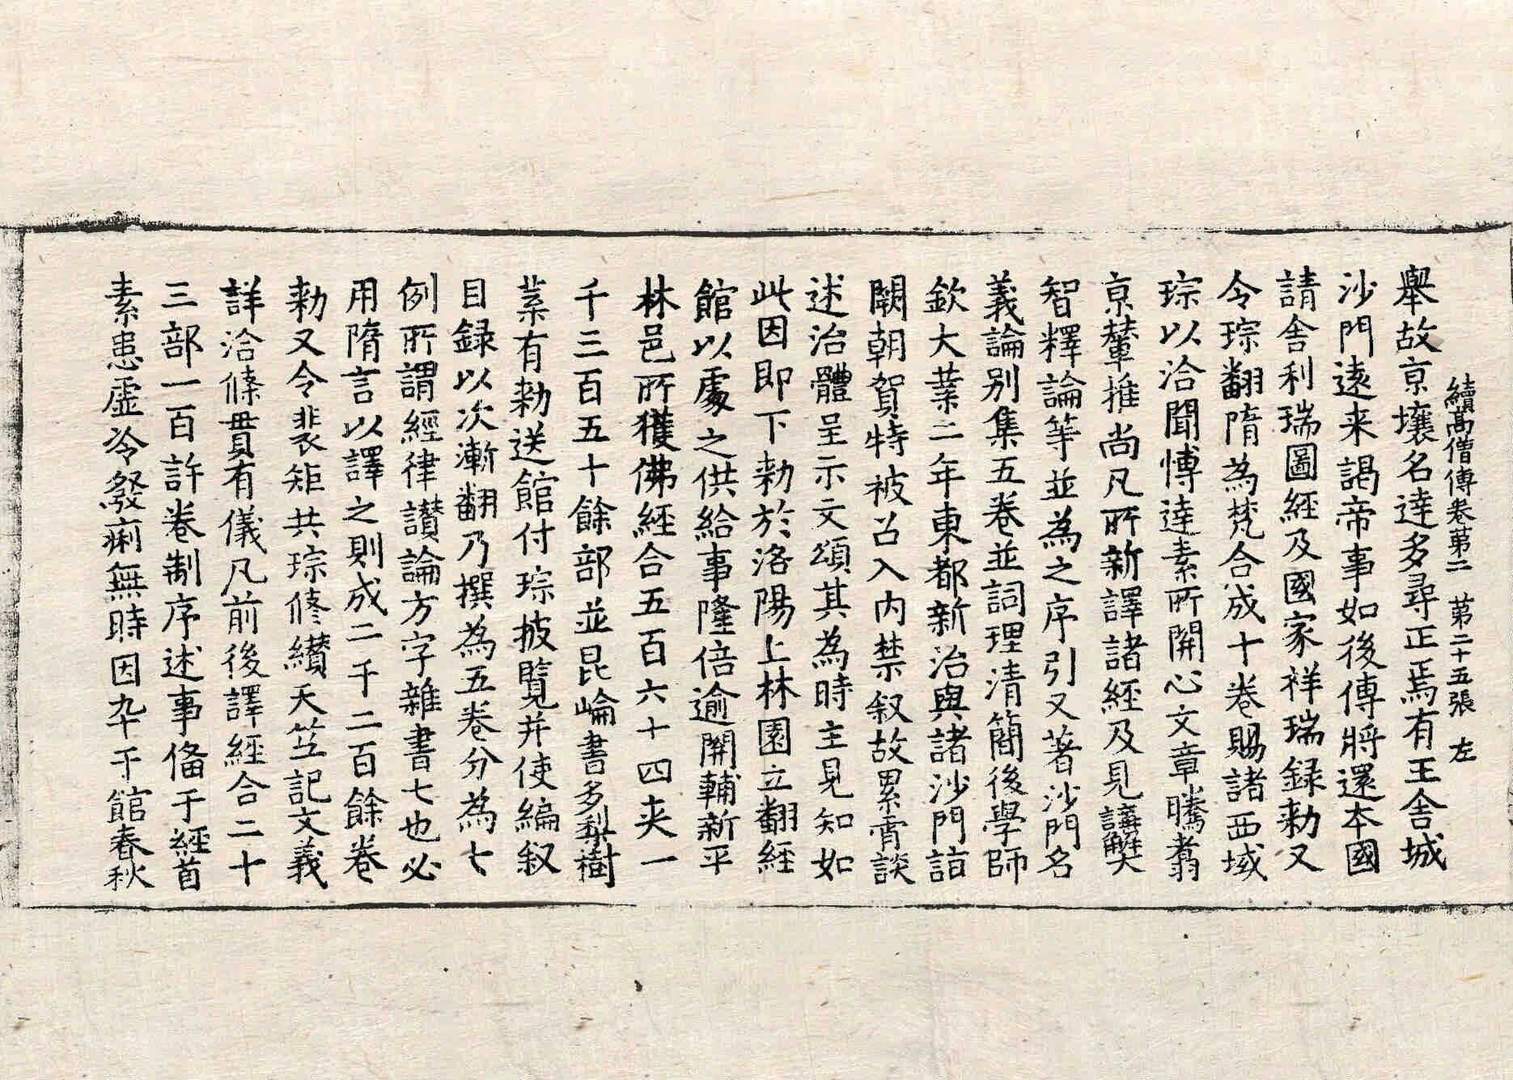 續高僧傳卷第二　第二十五張　左
舉故京壤名達多尋正焉有王舍城
沙門遠来謁帝事如後傳將還本國
請舍利瑞圖經及國家祥瑞録勅又
令琮翻隋為梵合成十卷賜諸西域
琮以洽聞博達素所開心文章騰翥
京輦推尚凡所新譯諸經及見講解
智釋論等並為之序引又著沙門名
義論别集五卷並詞理清簡後學師
欽大業二年東都新治與諸沙門詣
闕朝賀特被召入内禁叙故累宵談
述治體呈示文頌其為時主見知如
此因即下勅於洛陽上林園立翻經
館以處之供給事隆倍逾關輔新平
林邑所獲佛經合五百六十四夹一
千三百五十餘部並昆崘書多梨樹
葉有勅送館付琮披覽并使編叙
目録以次漸翻乃撰為五卷分為七
例所謂經律讃論方字雜書七也必
用隋言以譯之則成二千二百餘卷
勅又令裴矩共琮修纘天竺記文義
詳洽條貫有儀凡前後譯經合二十
三部一百許卷制序述事俻于經首
素患虛冷發痢無時因卒于館春秋